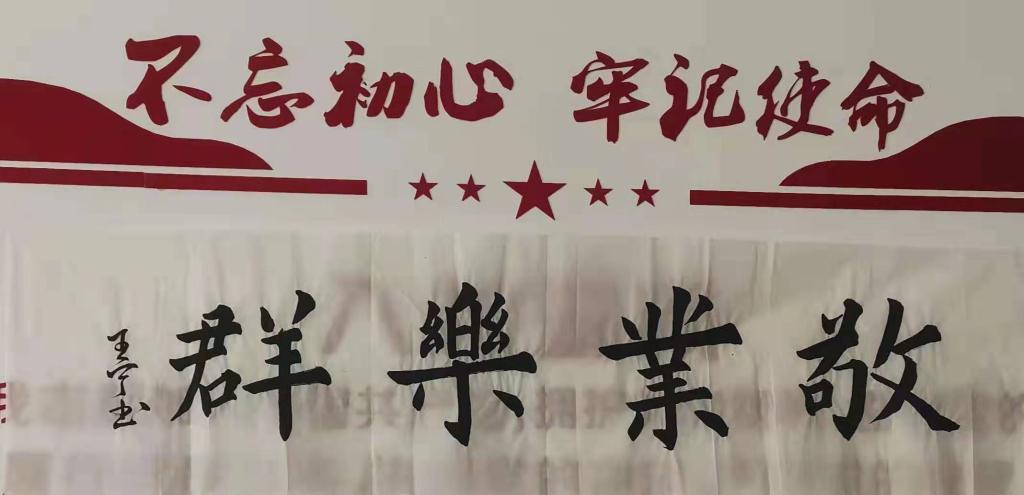 不忘初心 牢记使命
敬業樂群